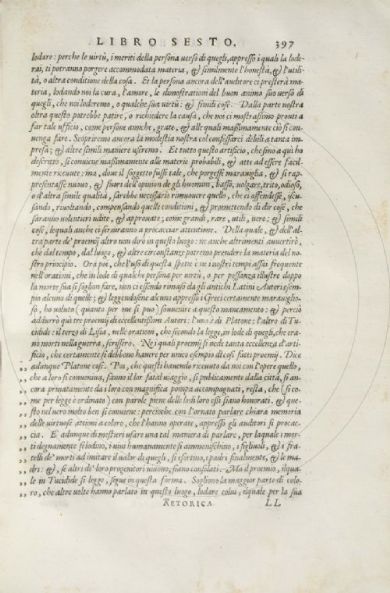 LIBRO SESTO. 397
lodaro: perche le virtù, i meriti della persona verso di quegli, appresso i quali la lode-
rai, ti potranno porgere accommodata materia, & similmente l'honestà, & l'utili-
tà, o altra conditione della cosa. Et la persona ancora dell'auditore ci presterà ma-
teria, lodando noi la cura, l'amore, le dimostrationi del buon animo suo verso di
quegli, che noi loderemo, o qualche sua virtù: & simili cose. Dalla parte nostra
oltra questo potrebbe patire, o richiedere la causa, che noi ci mostrassimo pronti a
far tale ufficio, come persone amiche, grate, & alle quali massimamente ciò si con-
uenga fare. Scopriremo ancora la modestia nostra col confessarci debili a tanta im-
presa; & altre simili maniere useremo. Et tutto questo artificio, che fino a qui ho
descritto, si conuiene massimamente alle materie probabili, & atte ad essere facil-
mente riceuute: ma, doue il soggetto fusse tale, che porgesse marauiglia, & si rap-
presentasse nuouo, & fuori dell'opinion de gli huomini, basso, uolgare, trito, odioso,
o d'altra simile qualità, sarebbe necessario rimouere quello, che ci offendesse, scu-
sando, riuoltando, compensando quelle conditioni, & promettendo di dir cose, che
saranno volentieri udite, & approuate, come grandi, rare, utili, uere: & simili
cose, le quali anche ci seruiranno a procacciar attentione. Della quale, & dell'al-
tra parte de' proemij altro non dirò in questo luogo: ne anche altramenti auuertirò,
che dal tempo, dal luogo, & altre circonstanze potremo prendere la materia del no-
stro principio. Ora poi, che l'uso di questa spetie è ne i nostri tempi assai frequente
nelle orationi, che in lode di qualche persona per uertù, o per possanza illustre dopo
la morte sua si soglion fare, non ci essendo rimaso da gli antichi Latini Autori essem-
pio alcuno di quelle; & leggendosene alcuna appresso i Greci certamente marauiglio-
sa, ho uoluto (quanto per me si può) souuenire a questo mancamento: & perciò
addurrò quì tre proemij di eccellentissimi Autori: l'uno è di Platone: l'altro di Tu-
cidide: il terzo di Lisia, nelle orationi, che secondo la legge, in lode di quegli, che era-
no morti nella guerra, scrissero. Ne i quali proemij si uede tanta eccellenza d'arti-
ficio, che certamente si debbono hauere per unico essempio di così fatti proemij. Dice
adunque Platone così. Poi, che questi hanno riceuuto da noi con l'opere quello,
,, che a loro si conueniua, fanno il lor fatal uiaggio, sì publicamente dalla città, sì an-
,, cora priuatamente da i loro con magnifica pompa accompagnati, resta, che (sì co-
,, me per legge è ordinato) con parole piene delle lodi loro essi siano honorati. & que-
,, sto nel uero molto ben si conuiene: percioche con l'ornato parlare chiara memoria
,, delle virtuose attioni a coloro, che l'hanno operate, appresso gli auditori si procac-
,, cia. E' adunque di mestieri usare una tal maniera di parlare, per laquale i mor-
,, ti degnamente si lodino, i uiui humanamente si ammoniscano, i figliuoli, & i fra-
,, telli de' morti ad imitare il valor di quegli, si essortino, i padri finalmente, & le ma-
,, dri: &, se altri de' loro progenitori uiuono, siano consolati. Ma il proemio, il qua-
,, le in Tucidide si legge, segue in questa forma. Sogliono la maggior parte di colo-
,, ro, che altre uolte hanno parlato in questo luogo, lodare colui, il quale per la sua
RETORICA. LL